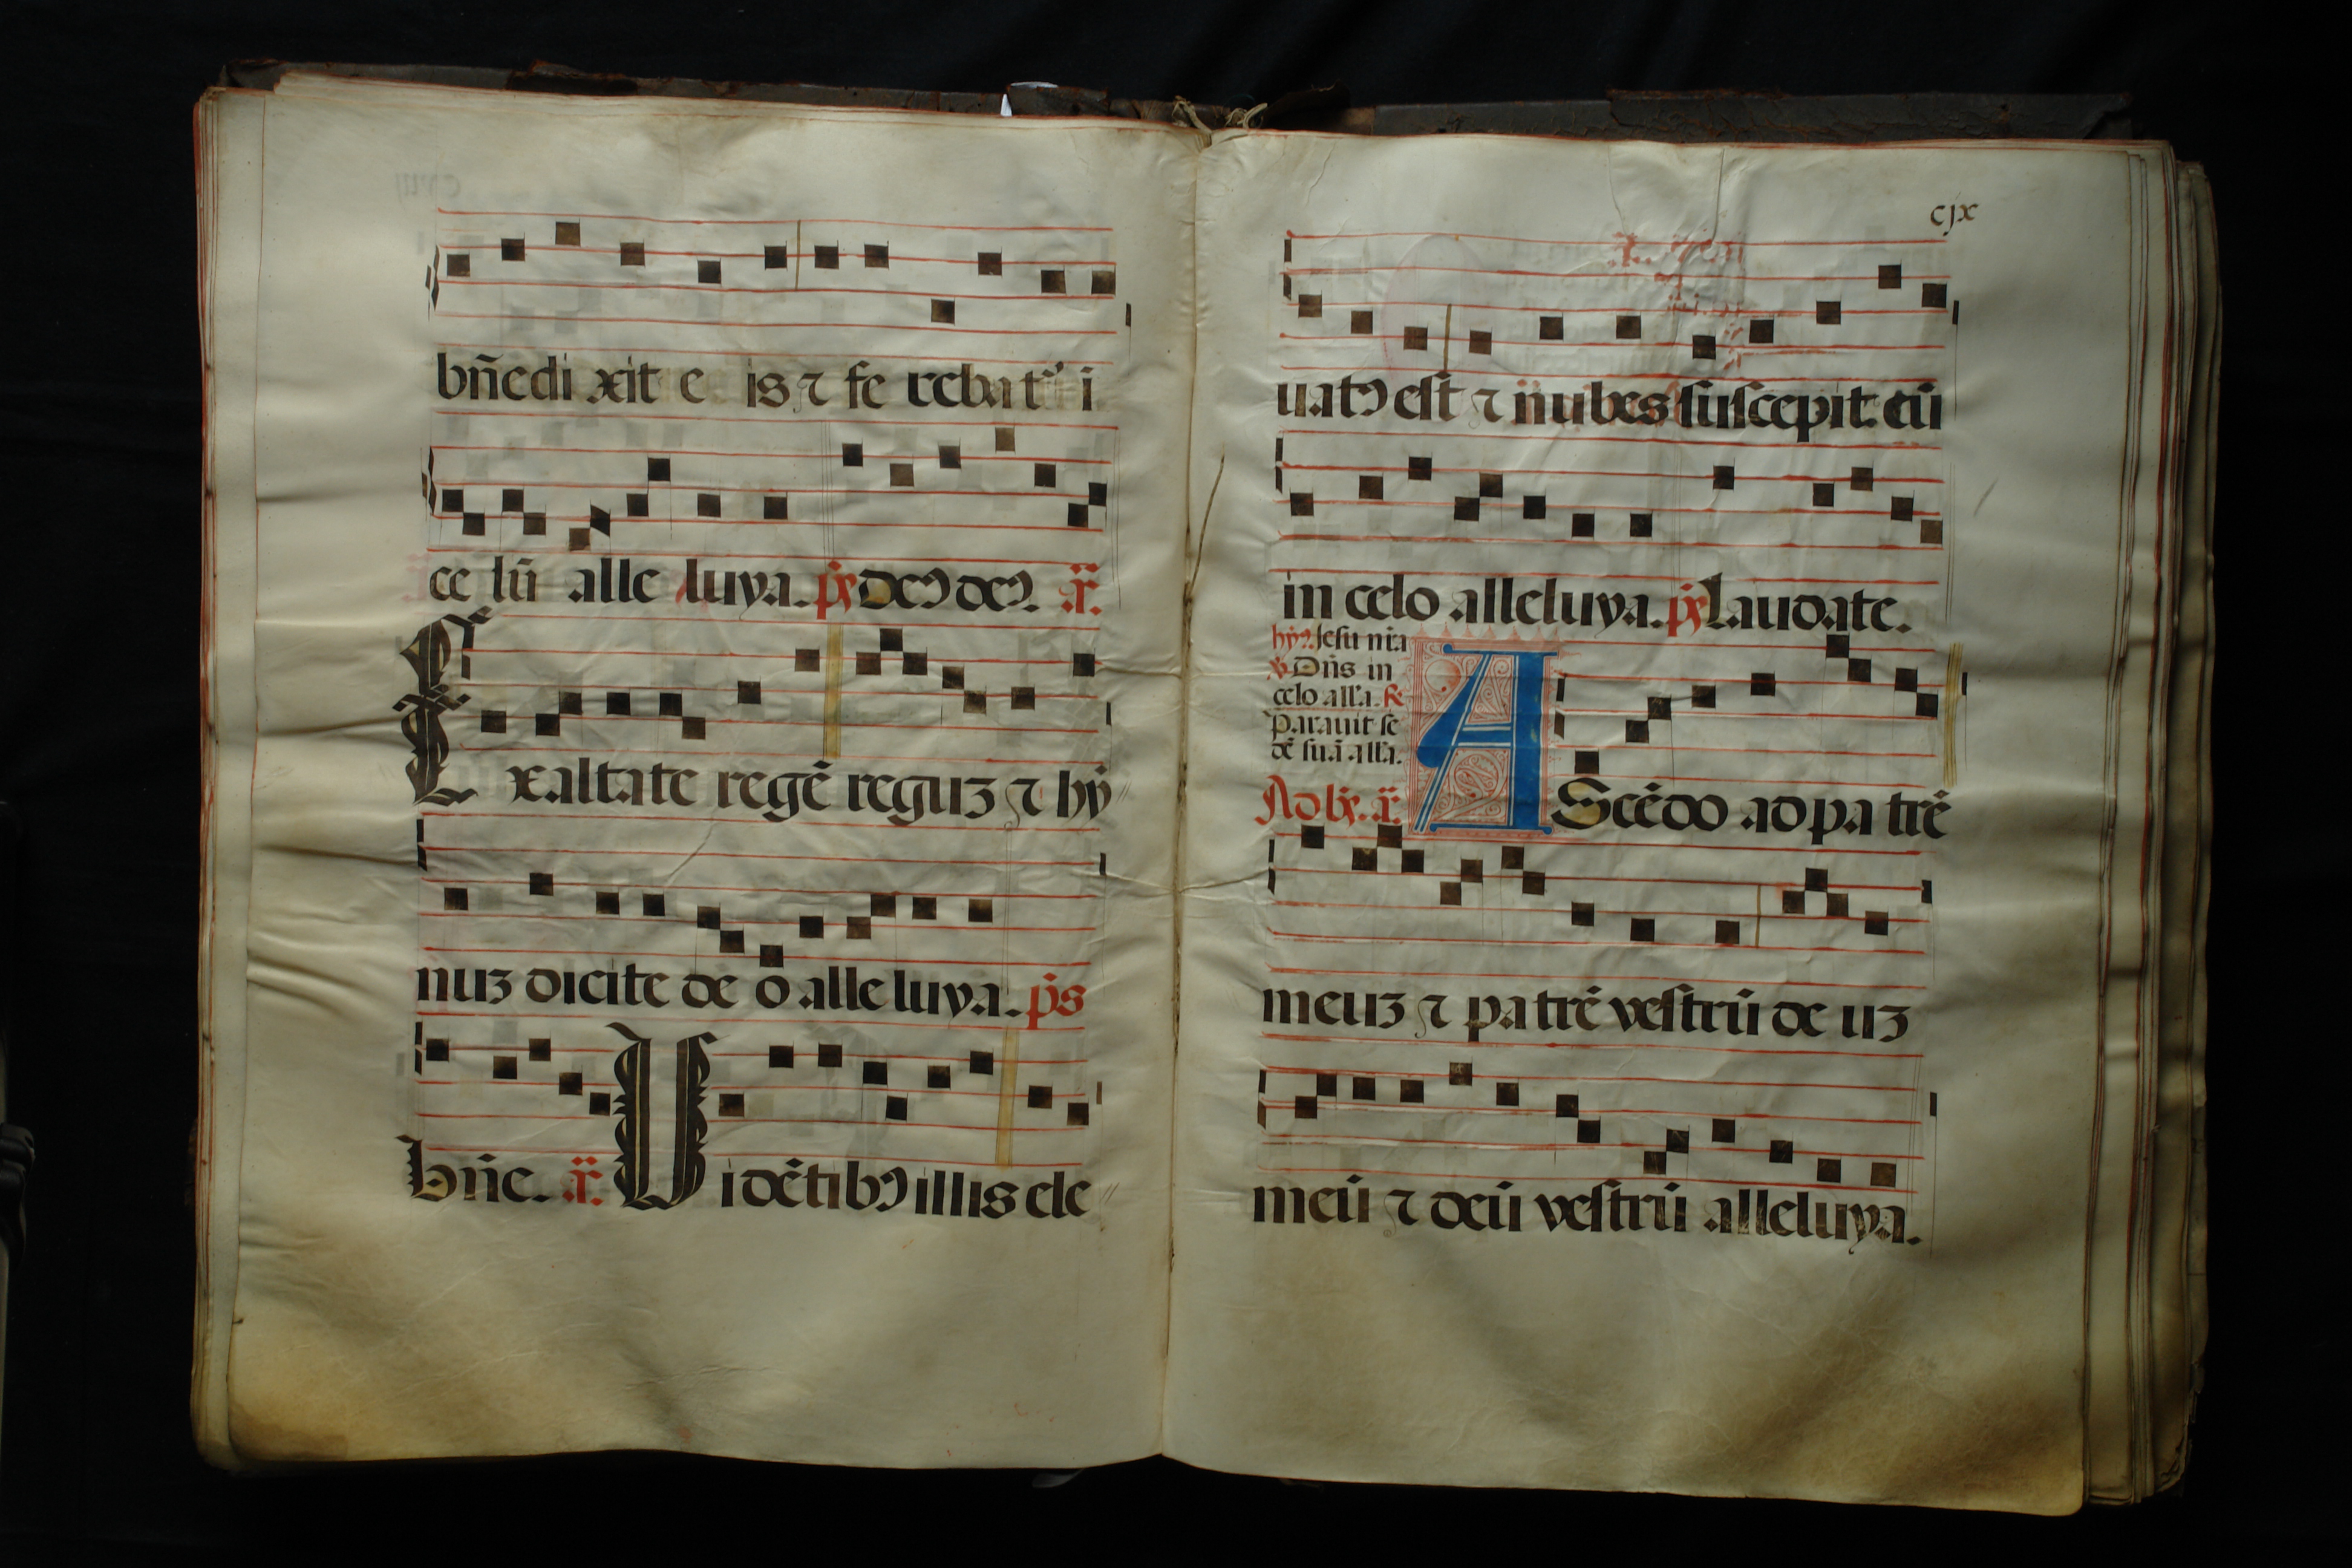 bñedi xit e is ⁊ fe rebatᷣ i
ce lū alle luya. ps̄ Deꝰ deꝰ. ā.
Exaltate regē reguꝫ ⁊ hȳ
nuꝫ dicite de o alle luya. ps̄
bñe. ā. Vidētibꝰ illis ele
cjx
uatꝰ est ⁊ nubes suscepit eū
in celo alleluya. ps̄ Laudate.
hȳꝰ. Jesu nr̄a
℣ Dn̄s in
celo all'a. ℟
Parauit se
dē suā all'a.
Ad bn̄. ā. AScēdo ad pa trē
meuꝫ ⁊ pa trē vestrū de uꝫ
meū ⁊ deū vestrū alleluya.